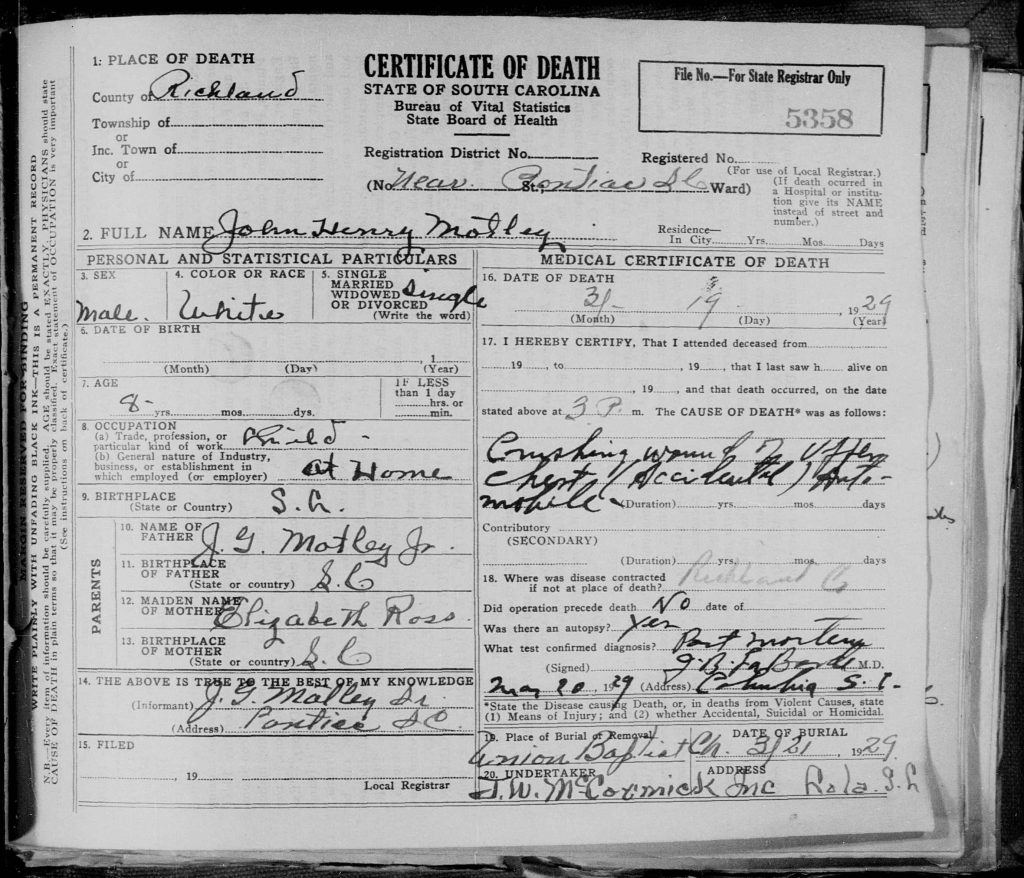 1: PLACE OF DEATH
County of Richland
Township of
or
Inc. Town of
or
City of
CERTIFICATE OF DEATH
STATE OF SOUTH CAROLINA
Bureau of Vital Statistics
State Board of Health
Registration District No.
(No. Near Pontiac S C St.; Ward)
File No.—For State Registrar Only
5358
Registered No.
(For use of Local Registrar.)
(If death occurred in
a Hospital or institu-
tion give its NAME
instead of street and
number.)
2. FULL NAME John Henry Motley
Residence—
In City Yrs. Mos. Days
PERSONAL AND STATISTICAL PARTICULARS
3. SEX
Male.
4. COLOR OR RACE
White
5. SINGLE
MARRIED
WIDOWED
OR DIVORCED
(Write the word)
Single
6. DATE OF BIRTH
, 1
(Month) (Day) (Year)
7. AGE
8 yrs. mos. dys.
IF LESS
than 1 day
hrs. or
min.
8. OCCUPATION
(a) Trade, profession, or
particular kind of work Child
(b) General nature of Industry,
business, or establishment in
which employed (or employer) at Home
9. BIRTHPLACE
(State or Country) S.C.
PARENTS
10. NAME OF
FATHER J. G. Motley Jr.
11. BIRTHPLACE
OF FATHER
(State or country) S.C
12. MAIDEN NAME
OF MOTHER Elizabeth Ross.
13. BIRTHPLACE
OF MOTHER
(State or country) S.C
14. THE ABOVE IS TRUE TO THE BEST OF MY KNOWLEDGE
(Informant) J. G. Motley Sr
(Address) Pontiac S C
15. FILED
, 19
Local Registrar
MEDICAL CERTIFICATE OF DEATH
16. DATE OF DEATH
3/ 19 , 1929
(Month) (Day) (Year)
17. I HEREBY CERTIFY, That I attended deceased from
19 , to , 19 , that I last saw h alive on
, 19 , and that death occurred, on the date
stated above at 3 P. m. The CAUSE OF DEATH* was as follows:
Crushing wound of Upper
Chest (Accidental) Auto-
mobile (Duration) yrs. mos. days
Contributory
(SECONDARY)
(Duration) yrs. mos. days
18. Where was disease contracted
if not at place of death? Richland Co
Did operation precede death No date of
Was there an autopsy? Yes
What test confirmed diagnosis? Post Mortem
(Signed) J. B. LaBorde M.D.
Mar 20 , 1929 (Address) Columbia S. C.
*State the Disease causing Death, or, in deaths from Violent Causes, state
(1) Means of Injury; and (2) whether Accidental, Suicidal or Homicidal.
19. Place of Burial or Removal
Union Baptist Ch.
DATE OF BURIAL
3/21 1929
20. UNDERTAKER
J. W. McCormick Inc
ADDRESS
Cola. S.C
MARGIN RESERVED FOR BINDING
WRITE PLAINLY WITH UNFADING BLACK INK—THIS IS A PERMANENT RECORD
N. B.—Every item of information should be carefully supplied. AGE should be stated EXACTLY. PHYSICIANS should state
CAUSE OF DEATH in plain terms so that it may be properly classified. Exact statement of OCCUPATION is very important
(See instructions on back of certificate.)